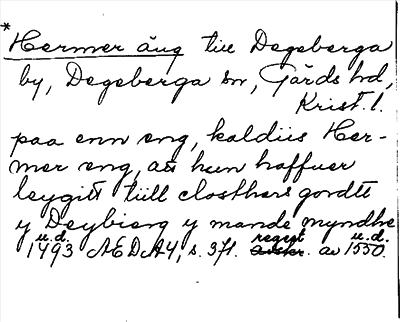 * Hermer äng till Degeberga
by, Degeberga sn, Gärds hd,
Krist. l.
paa enn eng, kaldiis Her-
mer eng, att hun haffuer
leygitt tiill closthers gordtt
y Deybierg y mande myndhe
u.d. regest u.d.
1493 ÆDA4, s. 371. avskr. av 1550.